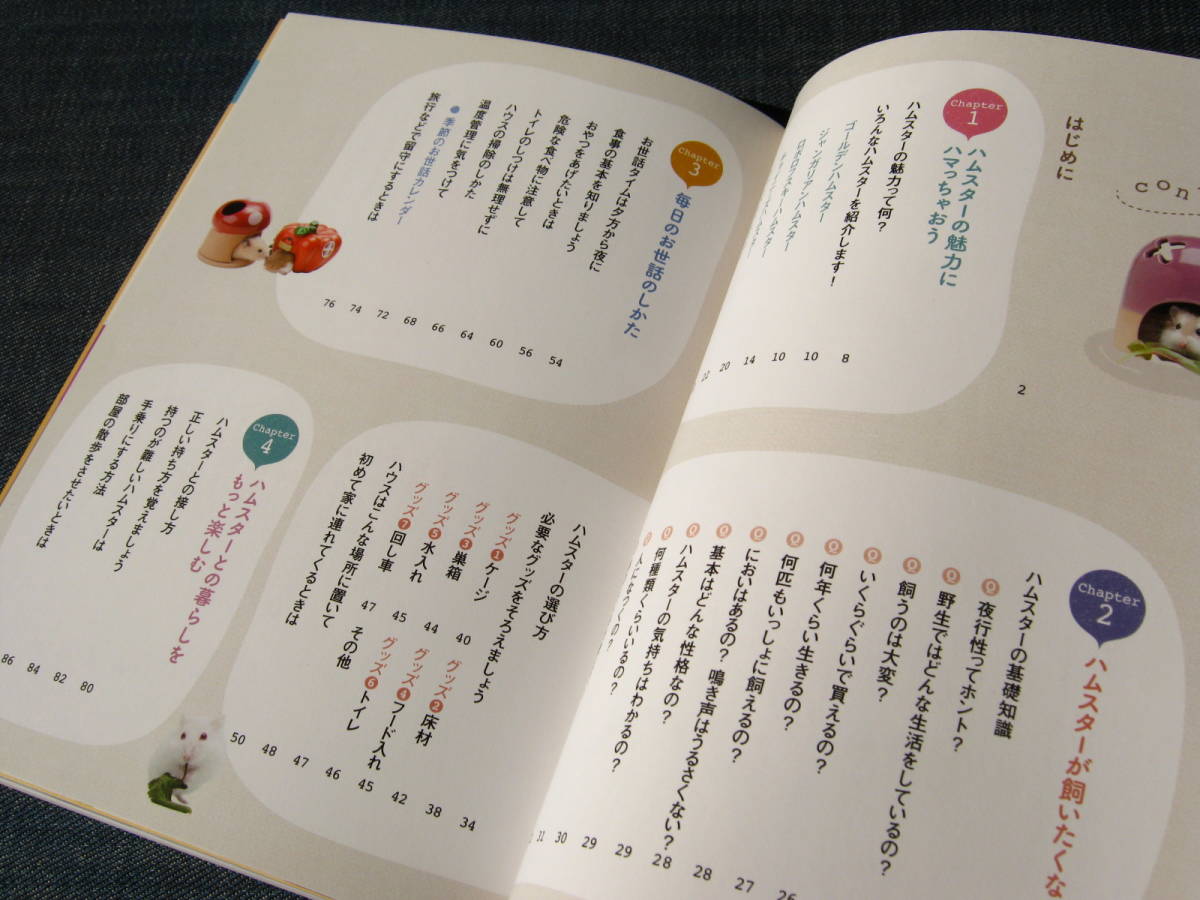 con
はじめに
2
Chapter
1
ハムスターの魅力に
ハマっちゃおう
ハムスターの魅力って何?
いろんなハムスターを紹介します!
ゴールデンハムスター
ジャンガリアンハムスター
ロボロフスキーハムスター
8
10
10
14
20
22
Chapter
2
ハムスターが飼いたくな
ハムスターの基礎知識
Q 夜行性ってホント?
Q 野生ではどんな生活をしているの?
Q 飼うのは大変?
Q いくらぐらいで買えるの?
Q 何年くらい生きるの?
Q 何匹もいっしょに飼えるの?
Q においはあるの? 鳴き声はうるさくない?
Q 基本はどんな性格なの?
Q ハムスターの気持ちはわかるの?
Q 何種類くらいいるの?
人になつくの?
26
27
28
28
29
29
30
31
ハムスターの選び方
必要なグッズをそろえましょう
グッズ❶ ケージ
グッズ❷ 床材
グッズ❸ 巣箱
40
グッズ❹ フード入れ
グッズ❺ 水入れ
44
グッズ❻ トイレ
グッズ❼ 回し車
45
その他
47
ハウスはこんな場所に置いて
初めて家に連れてくるときは
34
38
42
45
46
47
48
50
Chapter
3
毎日のお世話のしかた
お世話タイムは夕方から夜に
食事の基本を知りましょう
おやつをあげたいときは
危険な食べ物に注意して
トイレのしつけは無理せずに
ハウスの掃除のしかた
温度管理に気をつけて
●季節のお世話カレンダー
旅行などで留守にするときは
54
56
60
64
66
68
72
74
76
Chapter
4
ハムスターとの暮らしを
もっと楽しむ
ハムスターとの接し方
正しい持ち方を覚えましょう
持つのが難しいハムスターは
手乗りにする方法
部屋の散歩をさせたいときは
80
82
84
86